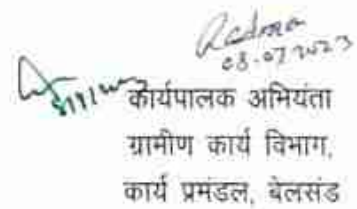 08.07.2023
कार्यपालक अभियंता
ग्रामीण कार्य विभाग,
कार्य प्रमंडल, बेलसंड